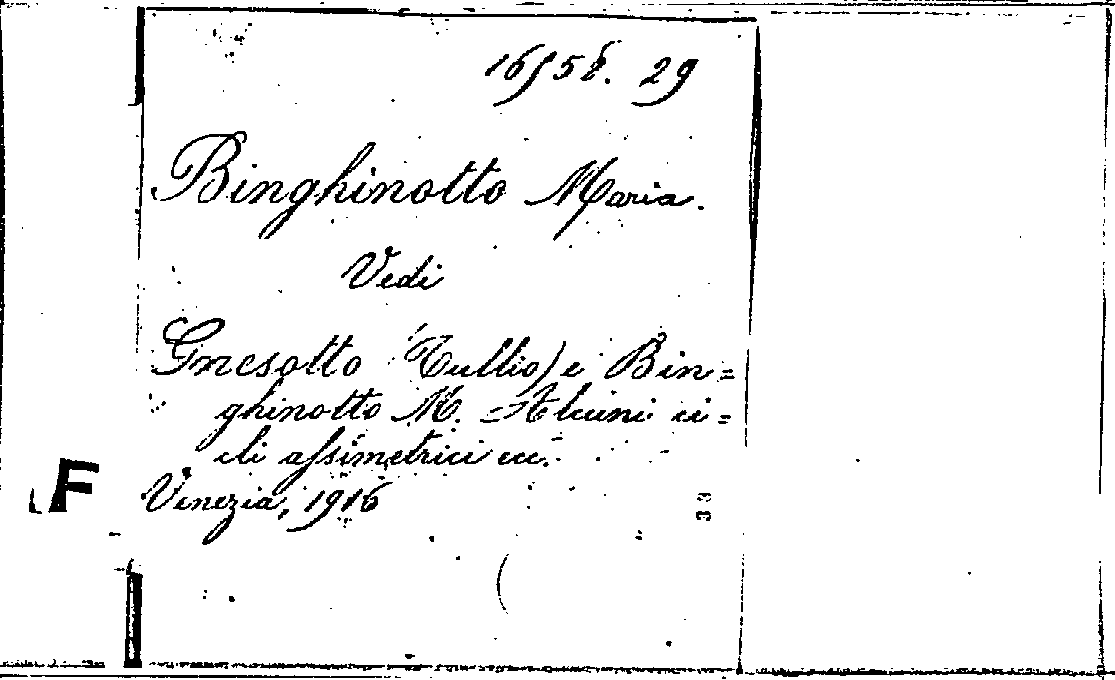 1655&. 29
Binghinotto Maria.
Vedi
Gnesotto (Tullio) e Bin=
ghinotto M. - Alcuni ci=
cli assimetrici ecc.
F
Venezia, 1916
33